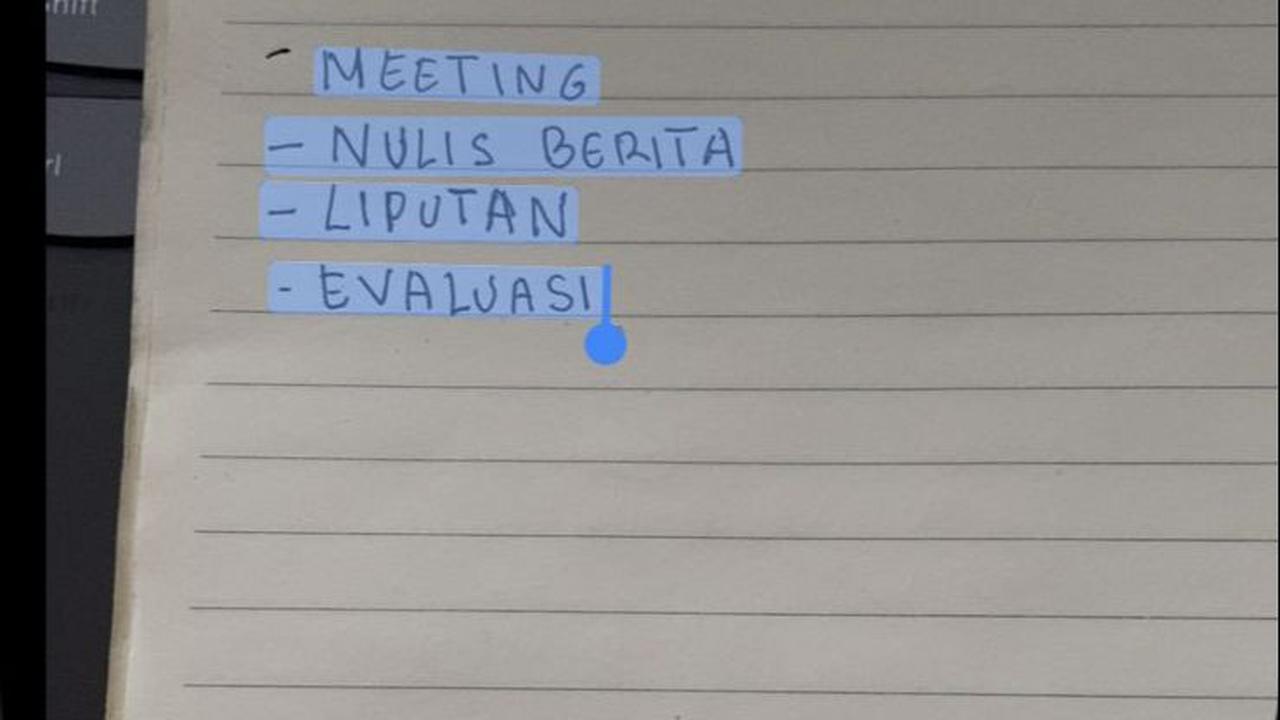 hift
rl
- MEETING
- NULIS BERITA
- LIPUTAN
- EVALUASI